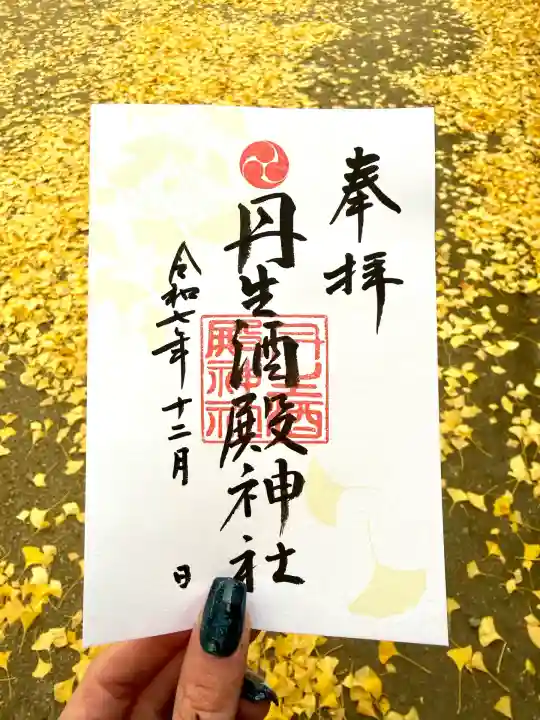 奉拝
丹生酒殿神社
丹生酒
殿神社
令和七年十二月 日